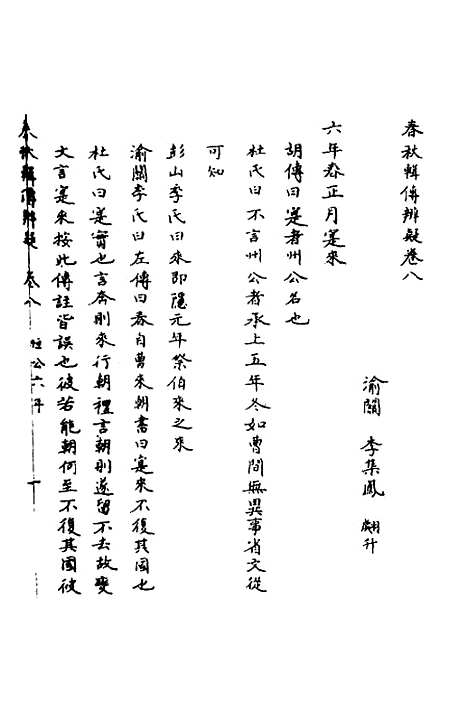 春秋輯傳辨疑卷八
渝關 李集鳳 翽升
六年春正月寔來
胡傳曰寔者州公名也
杜氏曰不言州公者承上五年冬如曹間無異事省文從
可知
彭山季氏曰來即隱元年祭伯來之來
渝關李氏曰左傳曰春自曹來朝書曰寔來不復其國也
杜氏曰寔實也言奔則來行朝禮言朝則遂留不去故變
文言寔來按此傳註皆誤也彼若能朝何至不復其國彼
春秋輯傳辨疑 卷八 桓公六年 一